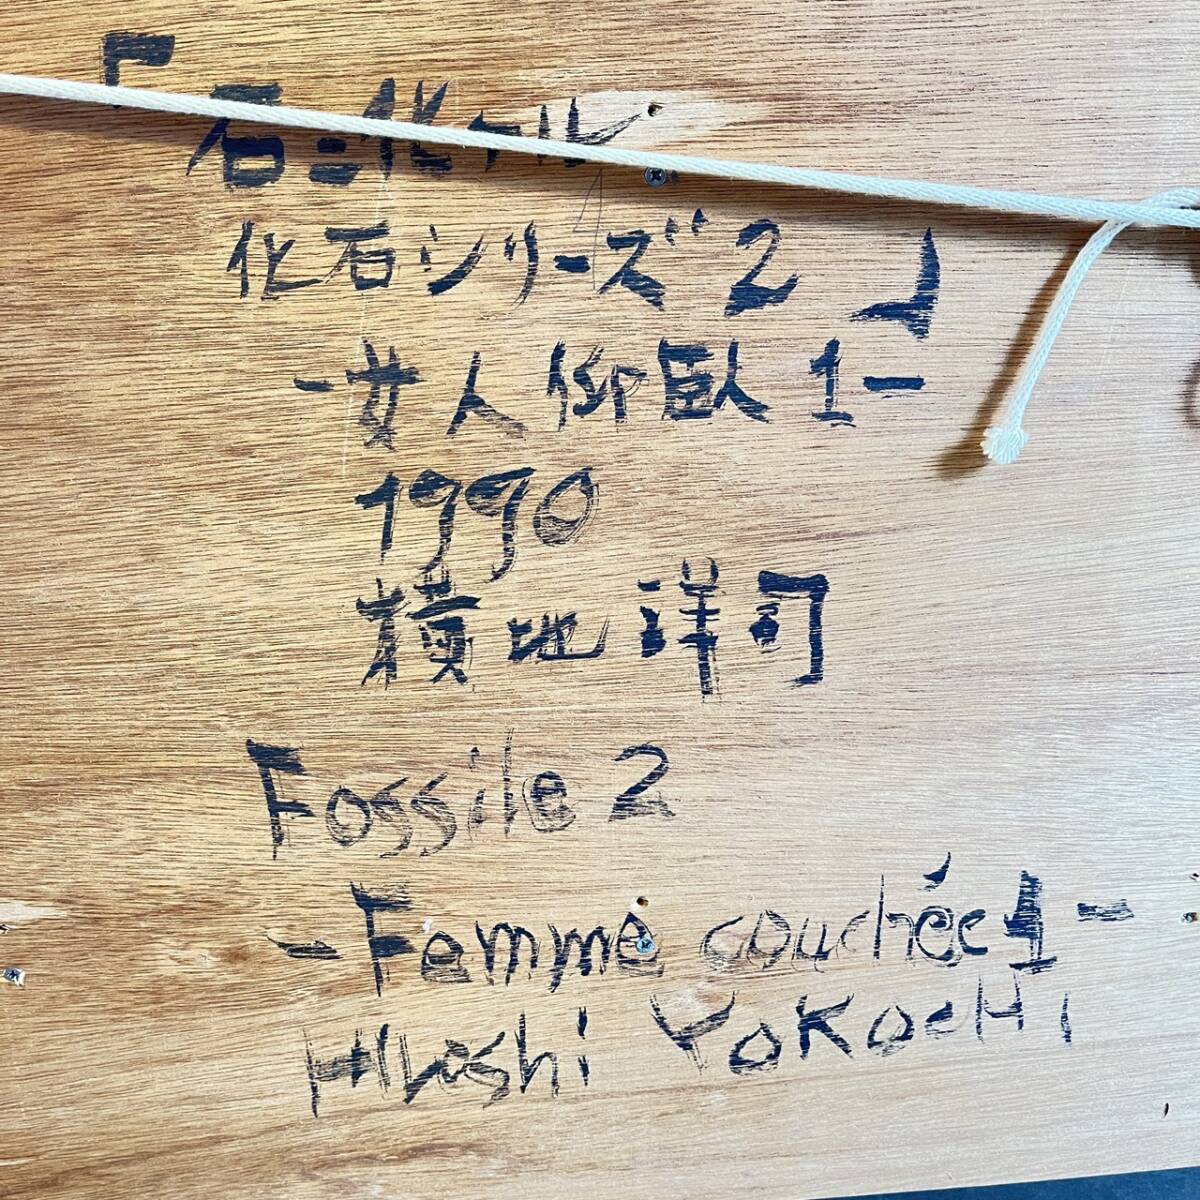 「石ニ化ケル
化石シリーズ2」
-女人仰臥1-
1990
横地洋司
Fossile 2
-Femme couchée 1-
Hiroshi YoKocHi